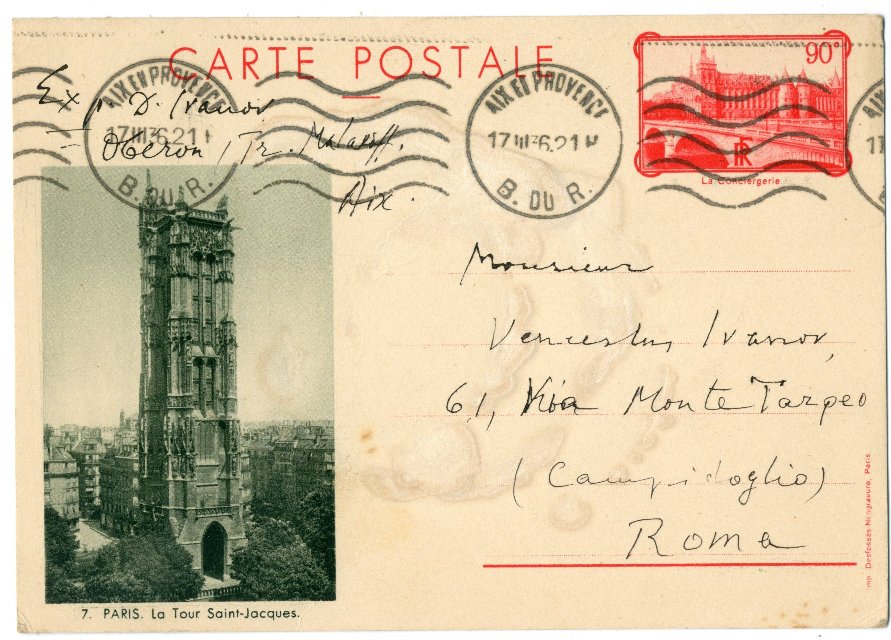 CARTE POSTALE
90c
Exp. D. Ivanov
Oberon, Tr. Malacoff.
Aix.
AIX EN PROVENCE
17 III 36.21 H
B. DU R.
AIX EN PROVENCE
17 III 36.21 H
B. DU R.
RF
La Conciergerie
Monsieur
Venceslas Ivanov,
61, Via Monte Tarpeo
(Campidoglio)
Roma
7. PARIS. La Tour Saint-Jacques.
Imp. Desfossés-Néogravure, Paris